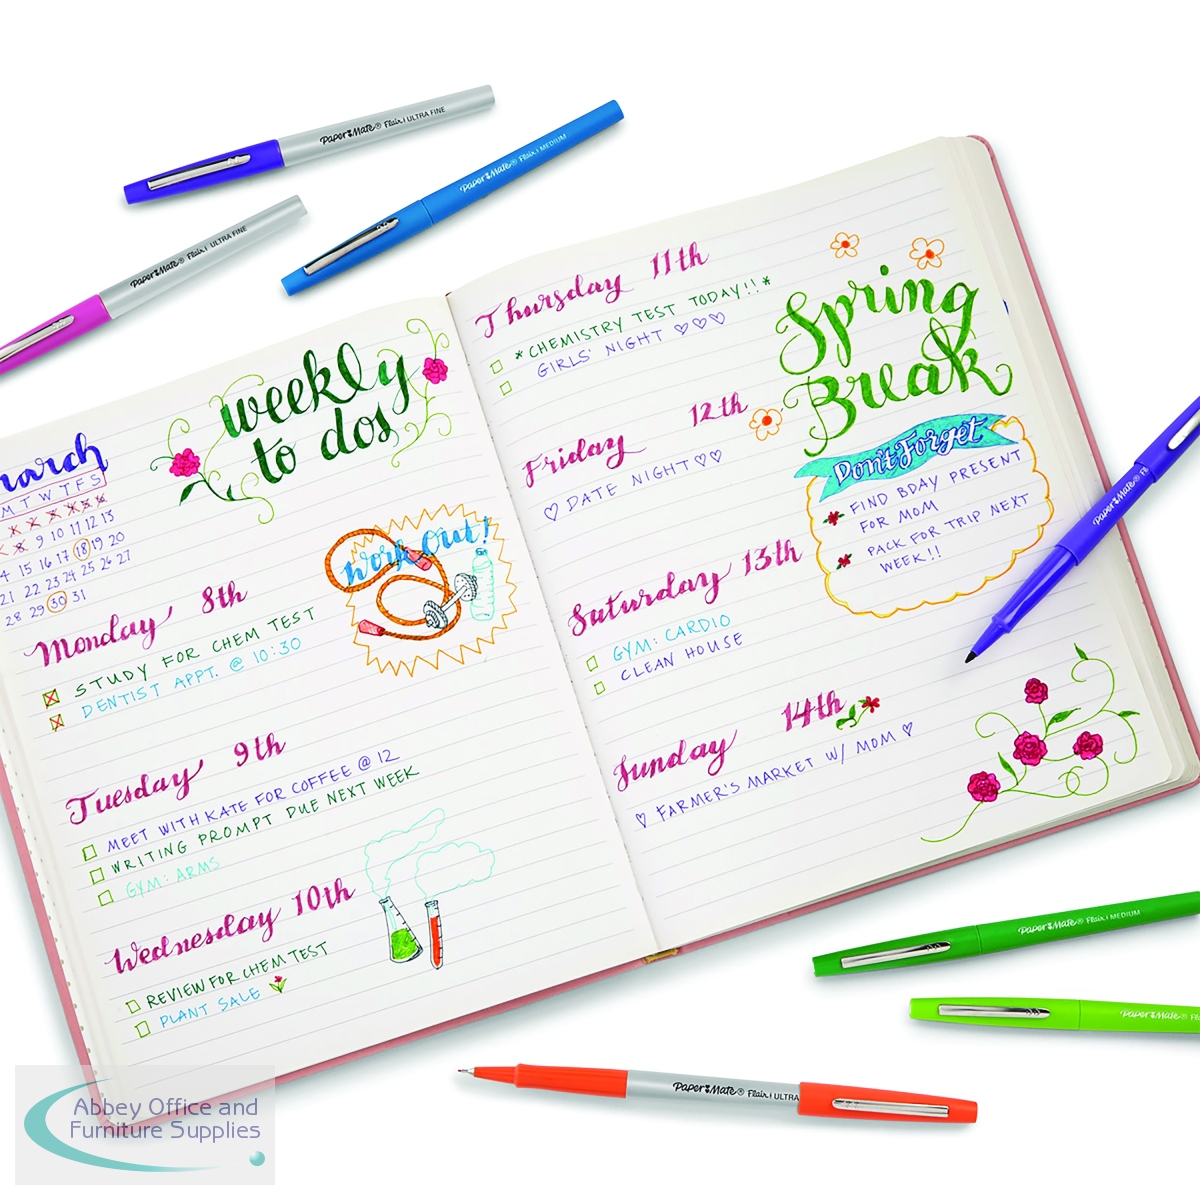 PaperMate® Flair | ULTRA FINE
PaperMate® Flair | MEDIUM
PaperMate® Flair | ULTRA FINE
march
M T W T F S
9 10 11 12 13
4 15 16 17 18 19 20
21 22 23 24 25 26 27
28 29 30 31
weekly
to dos
work out!
Monday 8th
STUDY FOR CHEM TEST
DENTIST APPT. @ 10:30
Tuesday 9th
MEET WITH KATE FOR COFFEE @ 12
WRITING PROMPT DUE NEXT WEEK
GYM: ARMS
Wednesday 10th
REVIEW FOR CHEM TEST
PLANT SALE
Thursday 11th
*CHEMISTRY TEST TODAY!!*
GIRLS' NIGHT ♡♡♡
Friday 12th
♡ DATE NIGHT ♡♡
Saturday 13th
GYM: CARDIO
CLEAN HOUSE
Sunday 14th
♡ FARMER'S MARKET W/ MOM ♡
Spring
Break
Don't Forget
FIND BDAY PRESENT
FOR MOM
PACK FOR TRIP NEXT
WEEK!!
PaperMate® Fl
PaperMate® Flair | MEDIUM
PaperMate® Fl
PaperMate® Flair | ULTRA
Abbey Office and
Furniture Supplies